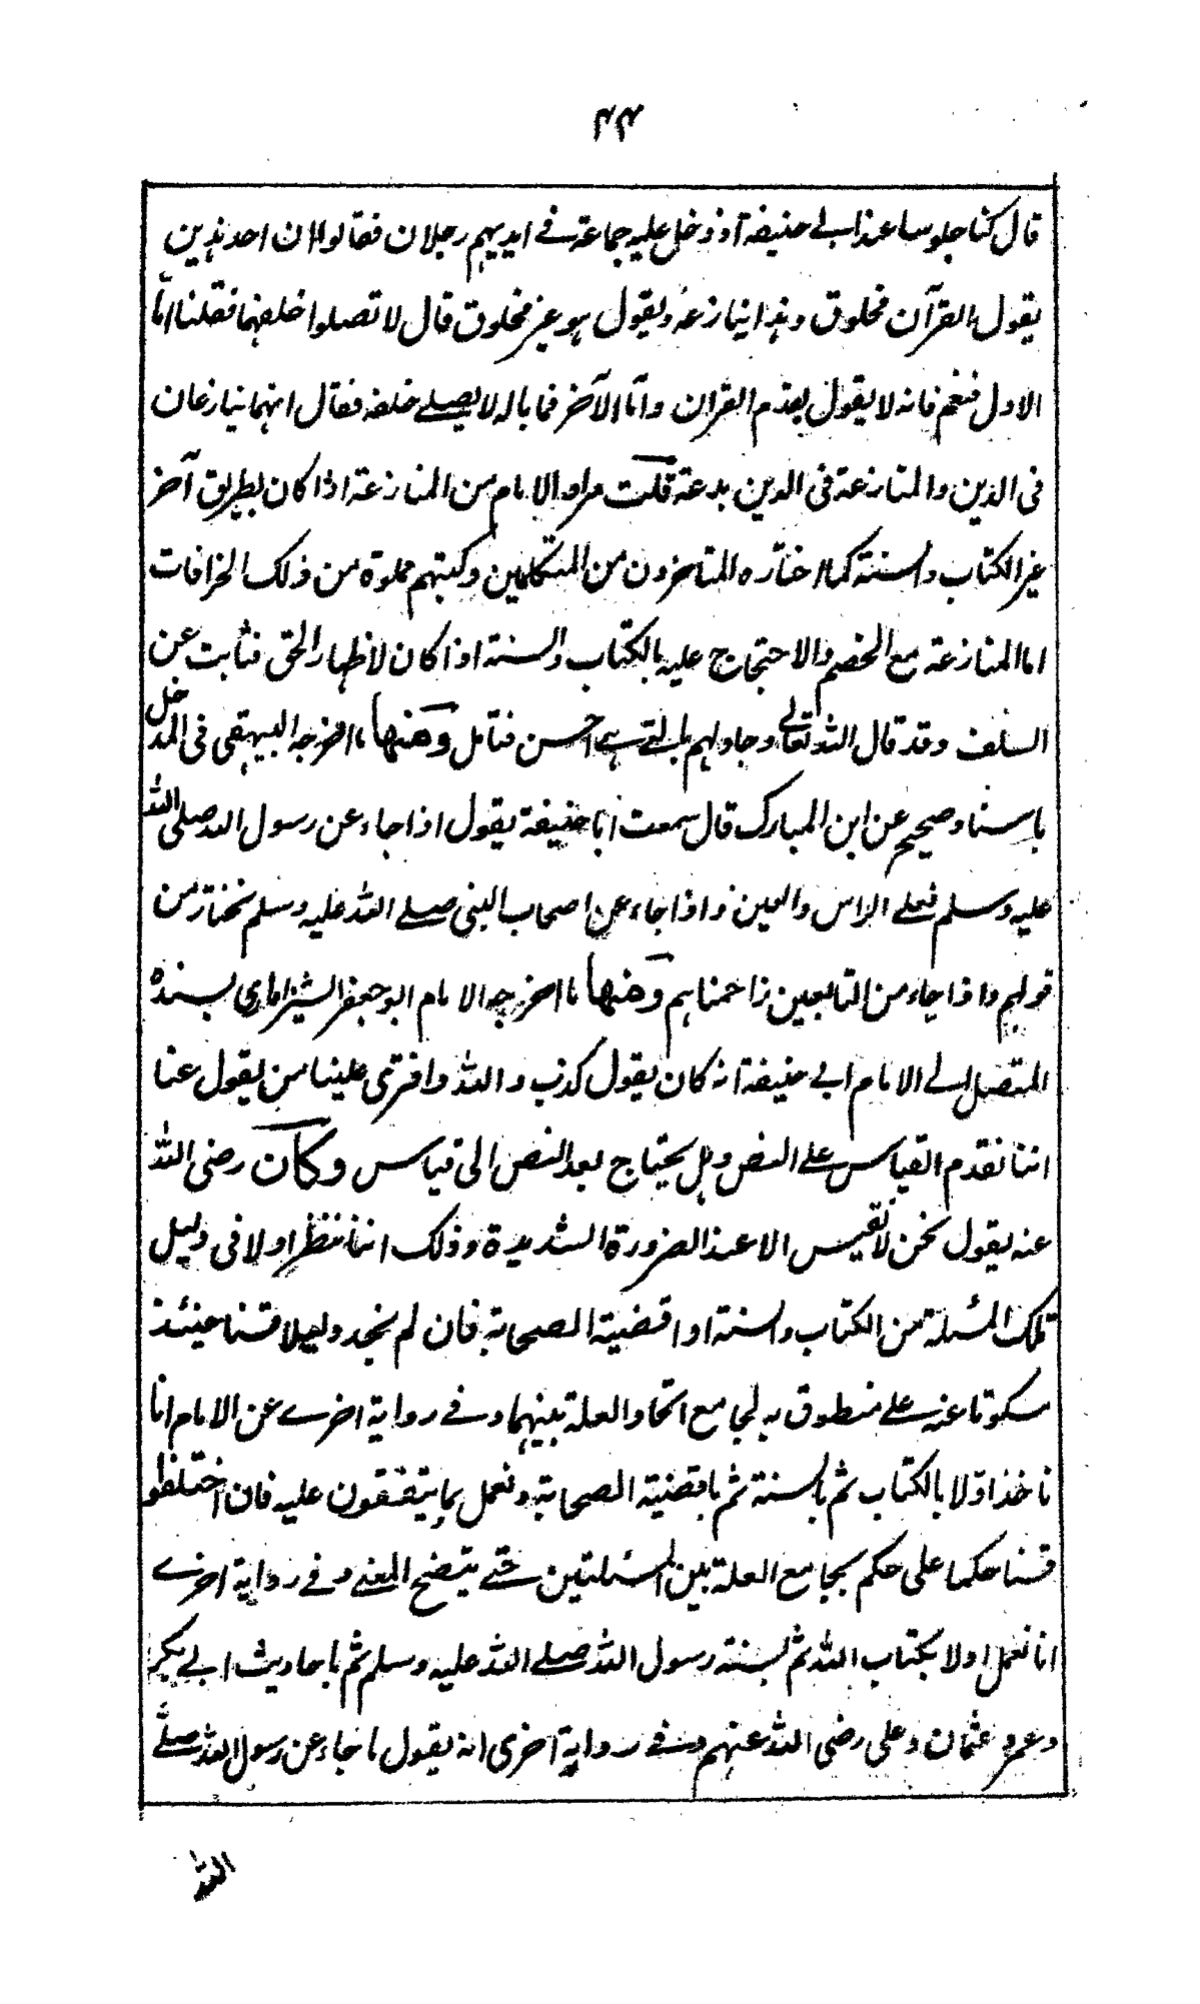 قال كنا جلوسا عند ابي حنيفة اذ دخل عليه جماعة في ايديهم رجلان فقالوا ان احد هذين
يقول القرآن مخلوق وهذا ينازعه ويقول هو غير مخلوق قال لا تصلوا خلفهما فقلنا اما
الاول فنعم فانه لا يقول بقدم القران واما الآخر فما باله لا يصلے خلفه فقال انهما ينازعان
فى الدين والمنازعة فى الدين بدعة قلت مراد الامام من المنازعة اذا كان بطريق آخر
غير الكتاب والسنة كما اختاره المتاخرون من المتكلمين وكتبهم مملوة من ذلك الخرافات
اما المنازعة مع الخصم والاحتجاج عليه بالكتاب والسنة اذا كان لاظهار الحق فثابت عن
السلف وقد قال الله تعالى وجادلهم بالتے هے احسن فتامل ومنها ما اخرجه البيهقى فى المدخل
باسناد صحيح عن ابن المبارك قال سمعت ابا حنيفة يقول اذا جاء عن رسول الله صلى الله
عليه وسلم فعلے الراس والعين واذا جاء عن اصحاب النبى صلے الله عليه وسلم نختار من
قولهم واذا جاء من التابعين زاحمناهم ومنها ما اخرجه الامام ابو جعفر الشيزاماري بسنده
المتصل الے الامام ابي حنيفة انه كان يقول كذب والله وافترى علينا من يقول عنا
اننا نقدم القياس على النص وهل يحتاج بعد النص الى قياس وكان رضى الله
عنه يقول نحن لا نقيس الا عند الضرورة الشديدة وذلك اننا ننظر اولا فى دليل
تلك المسئلة من الكتاب والسنة او اقضية الصحابة فان لم نجد دليلا قسنا حينئذ
سكوتا عنه علے منطوق به بجامع اتحاد العلة بينهما وفے رواية اخرے عن الامام انا
ناخذ اولا بالكتاب ثم بالسنة ثم باقضية الصحابة ونعمل بما يتفقون عليه فان اختلفوا
قسنا حكما على حكم بجامع العلة بين المسئلتين حتے يتضح المعنے وفے رواية اخرے
انا نعمل اولا بكتاب الله ثم بسنة رسول الله صلے الله عليه وسلم ثم باحاديث ابي بكر
وعمر وعثمان وعلى رضى الله عنهم وفے رواية اخرى انه يقول ما جاء عن رسول الله صلے
الله